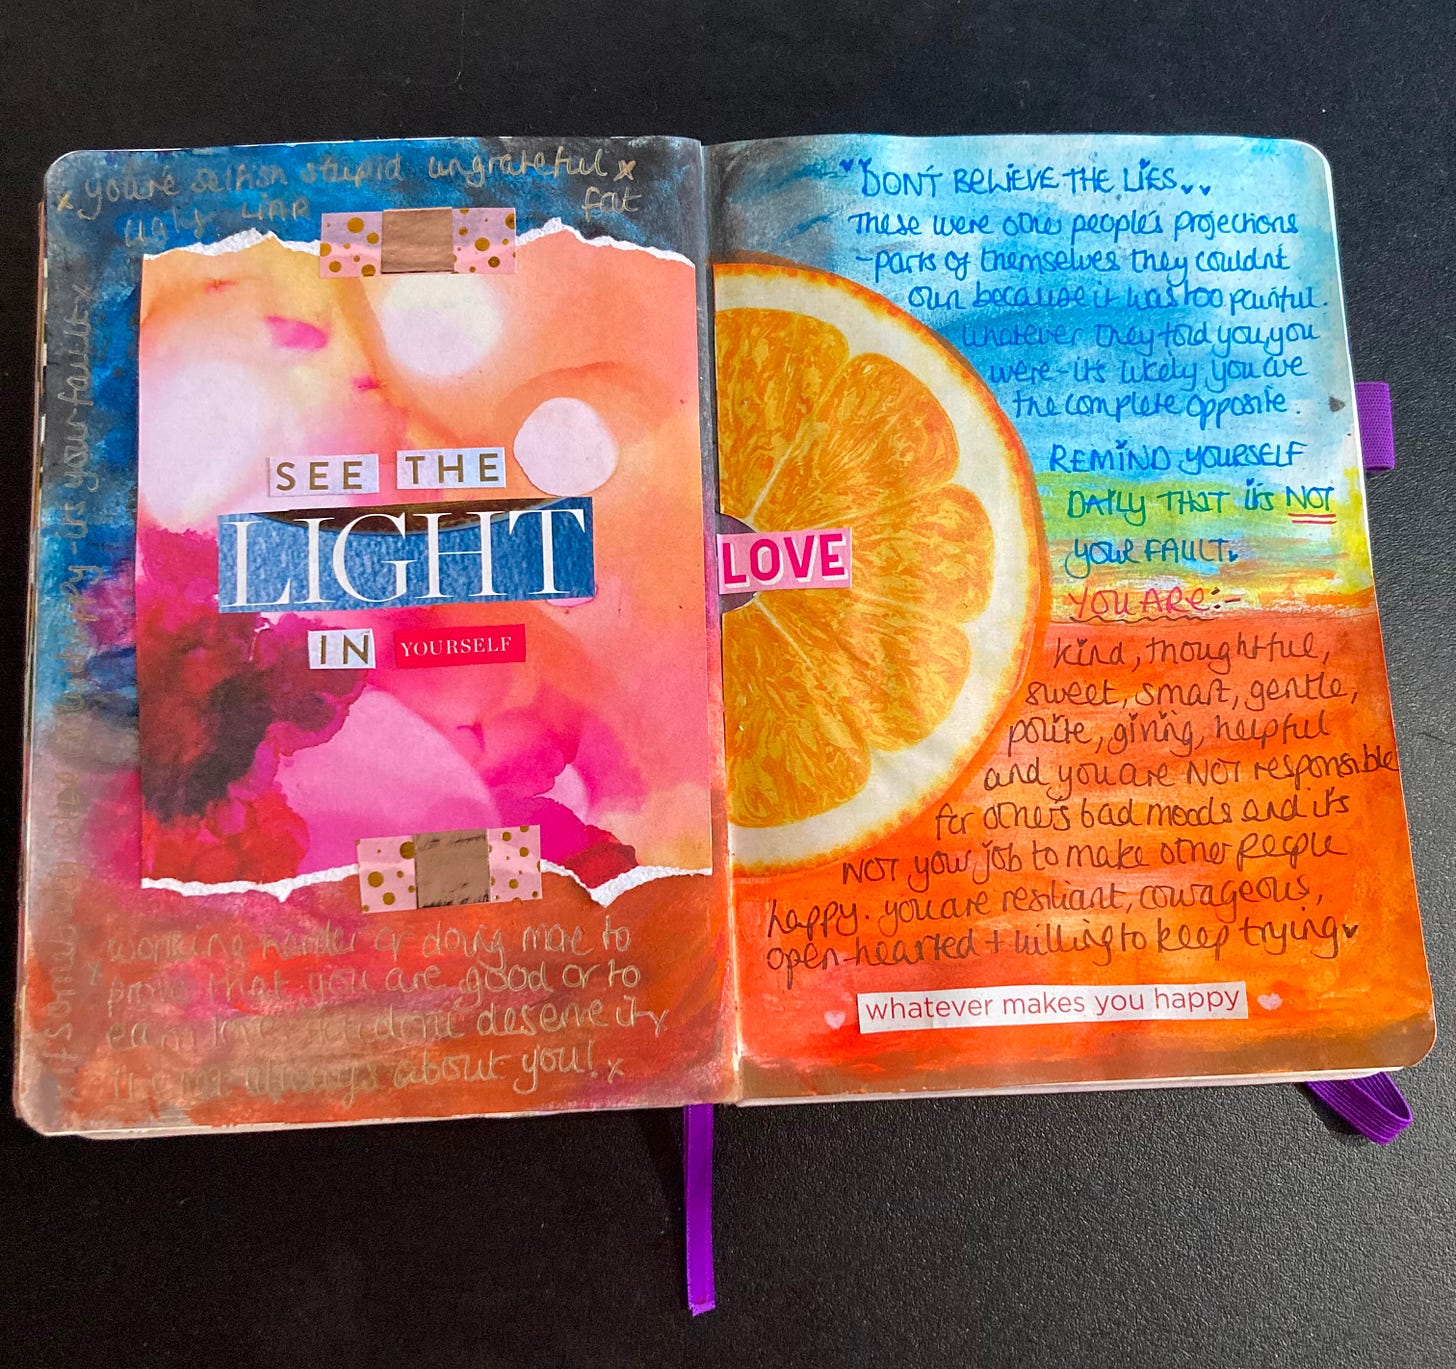 x you're selfish stupid ungrateful x
ugly liar fat
SEE THE
LIGHT
IN YOURSELF
working harder or doing more to
prove that you are good or to
earn love
deserve it x
always about you! x
- its your fault x
"DON'T BELIEVE THE LIES..
These were other people's projections
- parts of themselves they couldnt
own because it was too painful.
whatever they told you, you
were - its likely you are
the complete opposite.
REMIND YOURSELF
DAILY THAT its NOT
your FAULT.
YOU ARE:-
kind, thoughtful,
sweet, smart, gentle,
polite, giving, helpful
and you are NOT responsible
for other's bad moods and it's
NOT your job to make other people
happy. you are resiliant, courageous,
open-hearted + willing to keep trying ♥
LOVE
whatever makes you happy